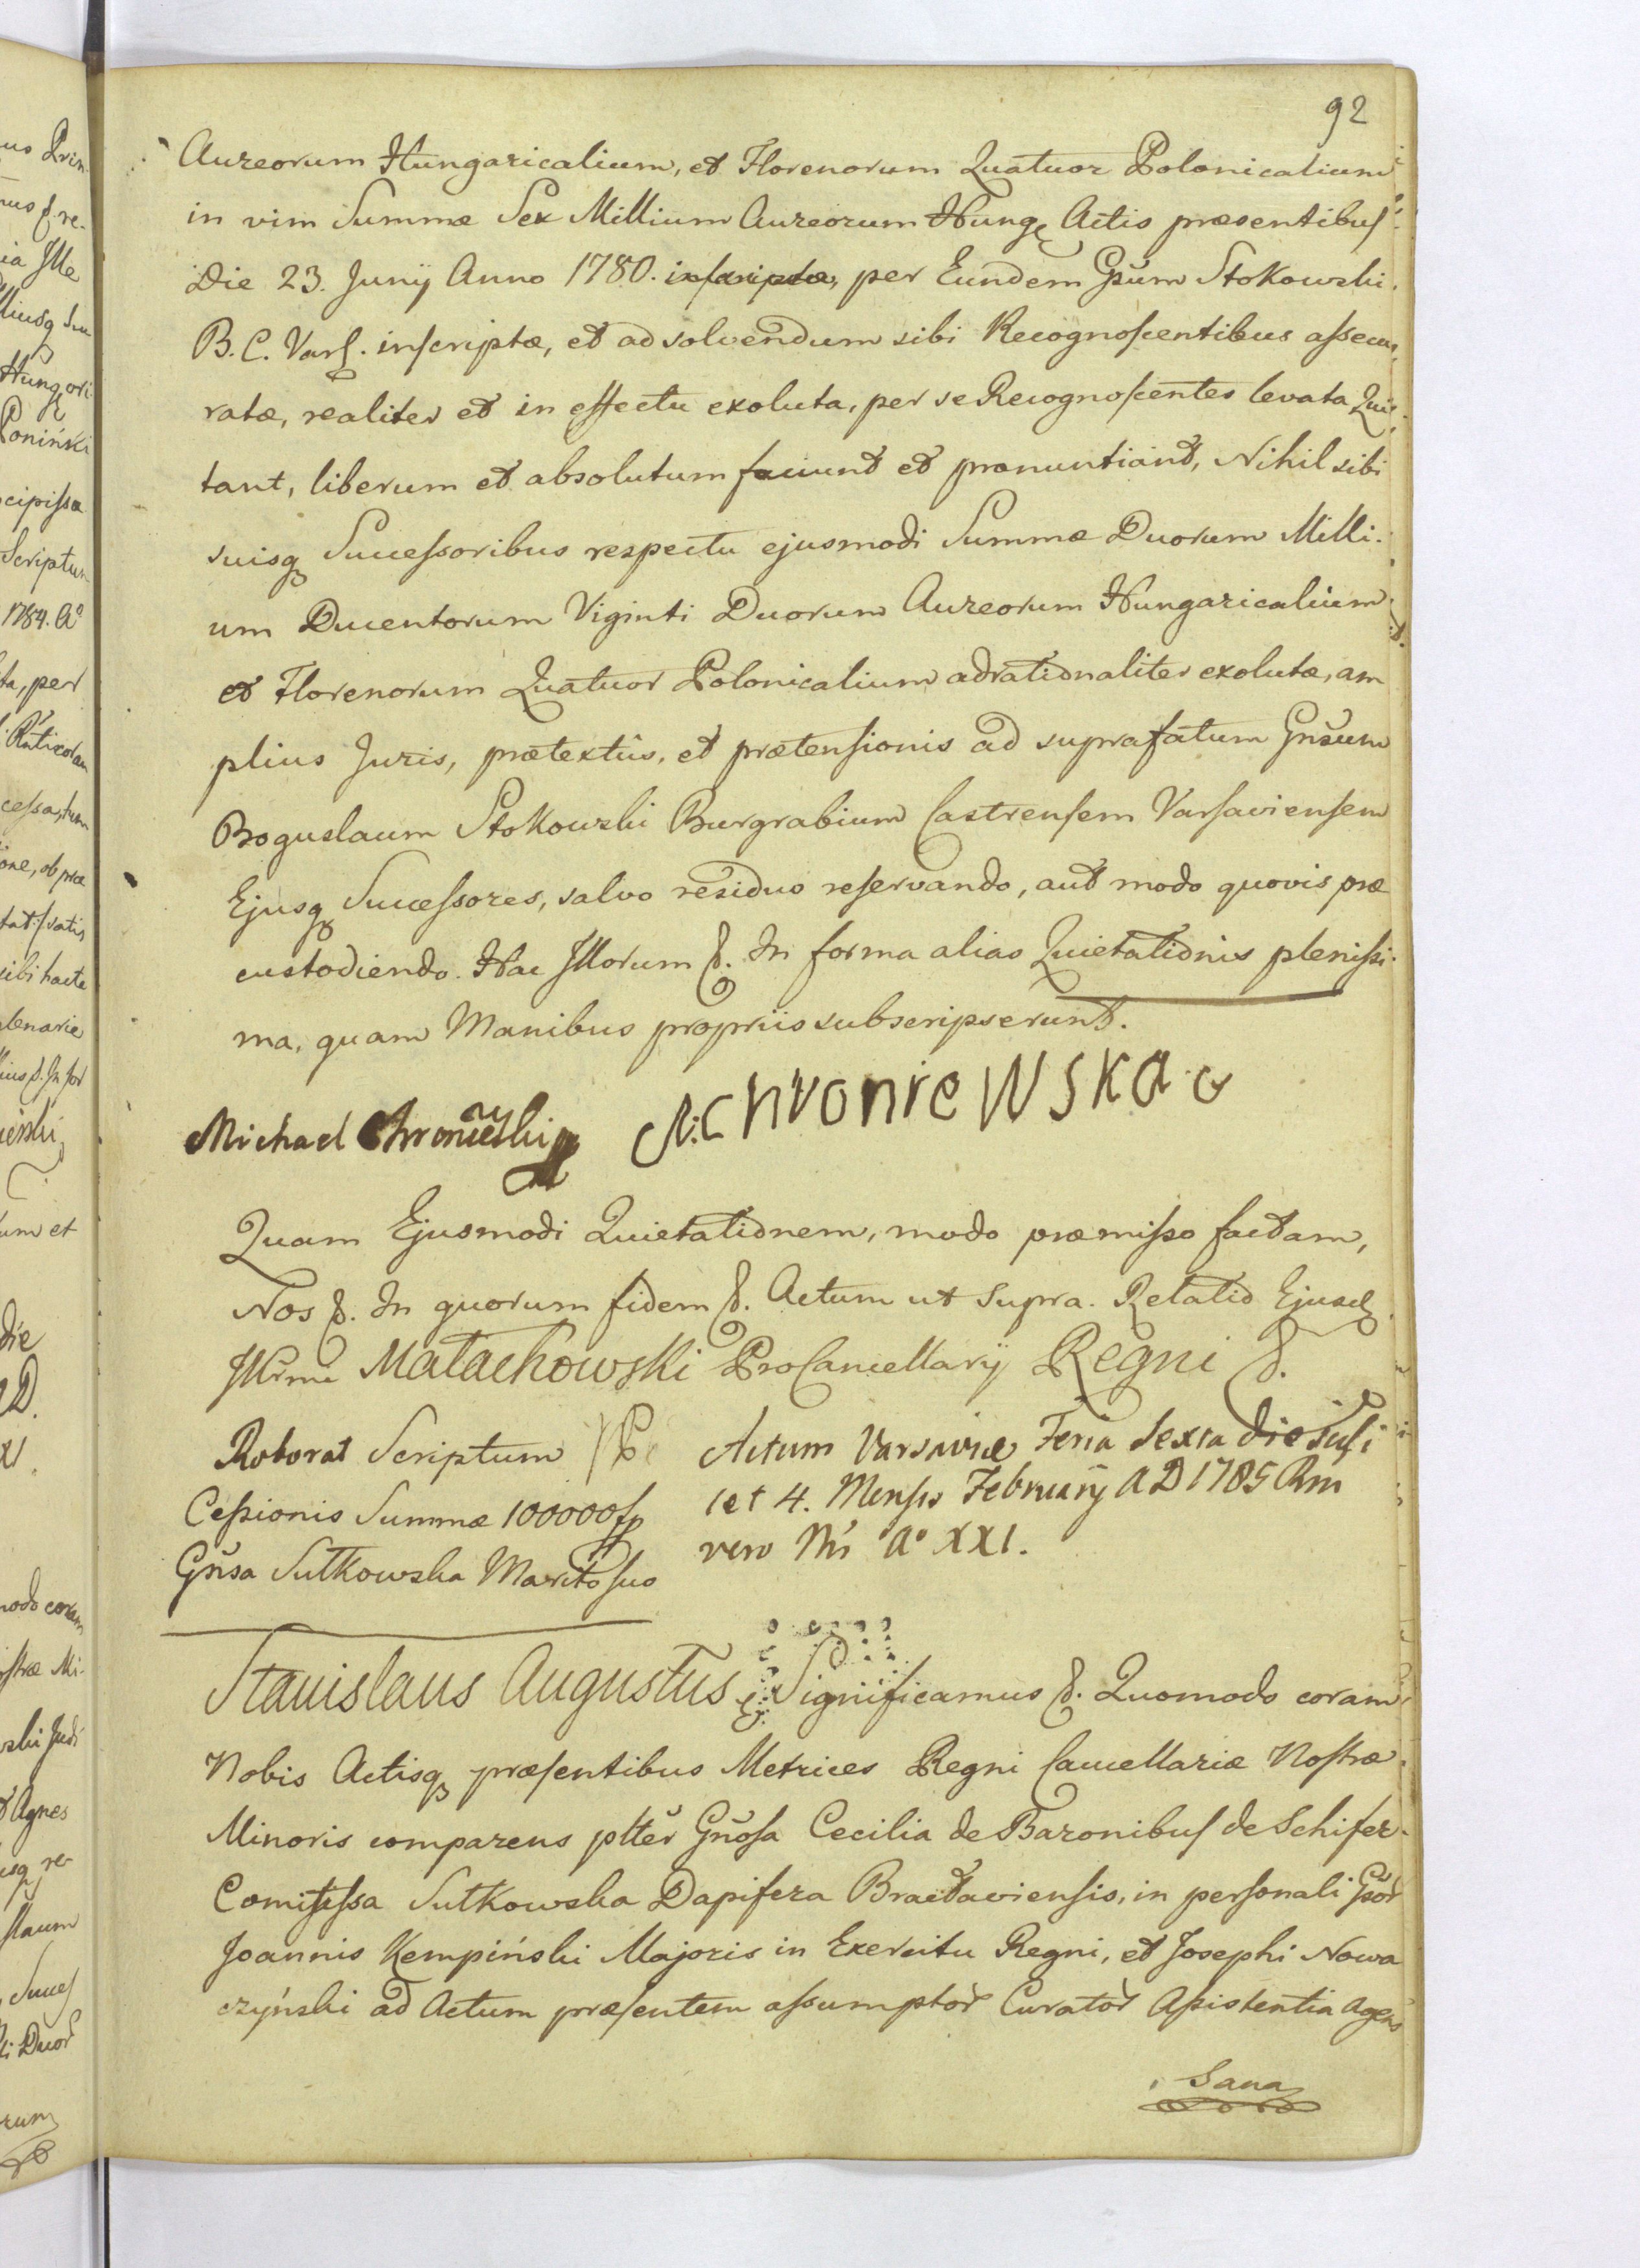 92
Aureorum Hungaricalium, et Florenorum Quatuor Polonicalium
in vim Summæ Sex Millium Aureorum Hung Actis præsentibus
Die 23. Junij Anno 1780. inscriptæ, per Eundem Gsum Stokowski
B. C. Vars. inscriptæ, et ad solvendum sibi Recognoscentibus assecu,
ratæ, realiter et in effectu exoluta, per se Recognoscentes levata Quie,
tant, liberum et absolutum faciunt et pronuntiant, Nihil sibi
suisq Successoribus respectu ejusmodi Summæ Duorum Milli.
um Ducentorum Viginti Duorum Aureorum Hungaricalium
et Florenorum Quatuor Polonicalium adrationaliter exolutæ, am
plius Juris, prætextûs, et prætensionis ad suprafatum Gnsum
Boguslaum Stokowski Burgrabium Castrensem Varsaviensem
Ejusq Successores, salvo residuo reservando, aut modo quovis præ
custodiendo. Hac Illorum &. In forma alias Quietationis plenissi.
ma, quam Manibus propriis subscripserunt.
Michael Chroniewski
M. Chroniewska
Quam Ejusmodi Quietationem, modo præmisso factam,
Nos &. In quorum fidem &. Actum ut supra. Relatio Ejusd
Illrmi Małachowski ProCancellarij Regni &.
Roborat Scriptum
Cessionis Summæ 100000 fp
Gnsa Sutkowska Marito suo
Actum Varsaviæ Feria Sexta die Scili
cet 4. Mensis Februarij A D 1785 Rni
vero Nri A° XXI.
Stanislaus Augustus Significamus &. Quomodo coram
Nobis Actisq præsentibus Metrices Regni Cancellariæ Nostræ
Minoris comparens plter Gnosa Cecilia de Baronibus de Schifer
Comitissa Sutkowska Dapifera Bracłaviensis, in personali Gsor
Joannis Kempiński Majoris in Exercitu Regni, et Josephi Nowa
czyński ad Actum præsentem assumptor Curator Assistentia Agens
Sana